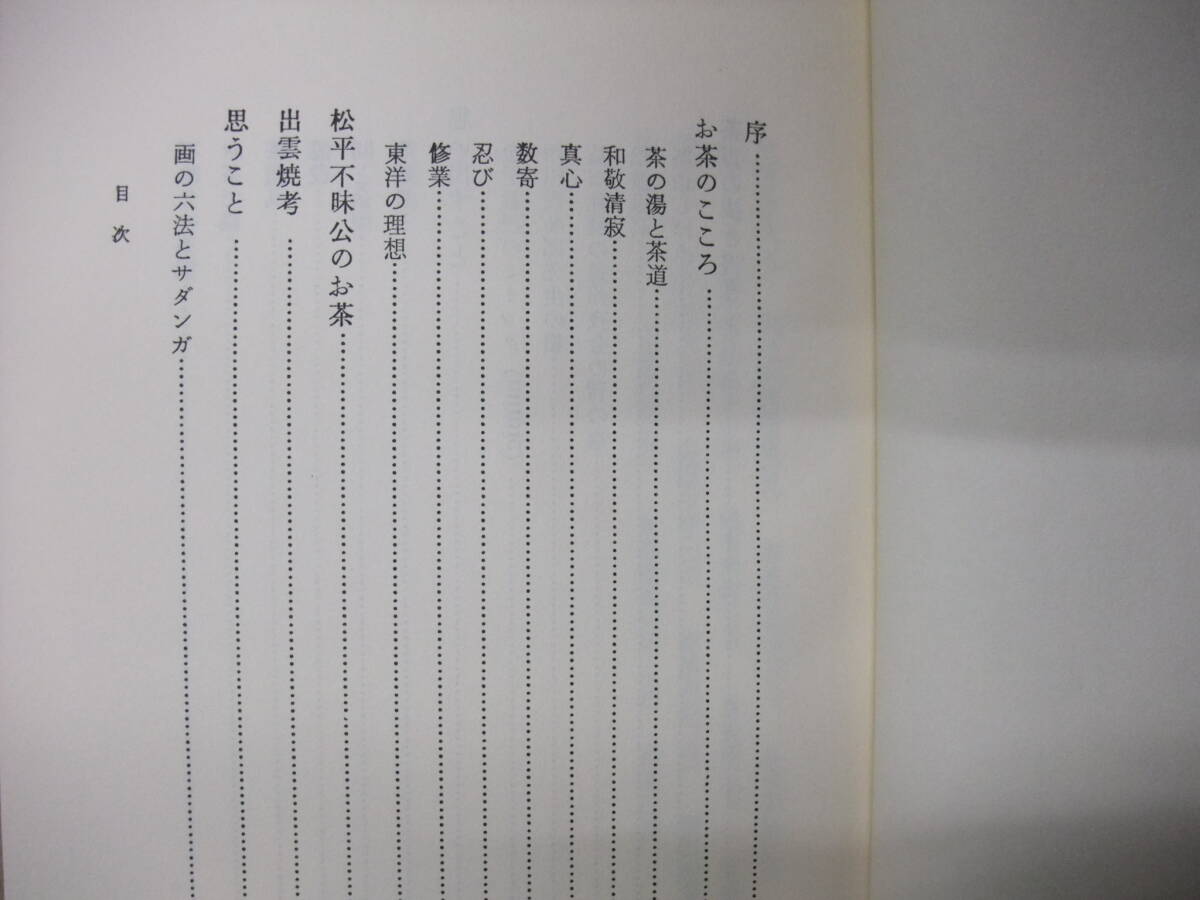 序
お茶のこころ
茶の湯と茶道
和敬清寂
真心
数寄
忍び
修業
東洋の理想
松平不昧公のお茶
出雲焼考
思うこと
画の六法とサダンガ
目次